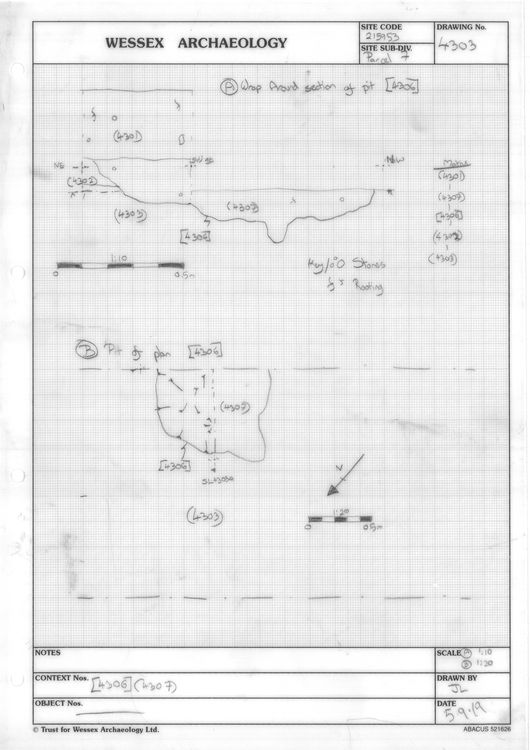 WESSEX ARCHAEOLOGY
SITE CODE
215953
SITE SUB-DIV.
Parcel 7
DRAWING No.
4303
(A) Wrap Around section of pit [4306]
(4301)
NE
SW/SE
NW
(4302)
(4303)
(4307)
[4306]
Matrix
(4301)
(4307)
[4306]
(4302)
(4303)
1:10
0
0.5m
Key/ Stones
Rooting
(B) Pit of plan [4306]
(4307)
[4306]
(4303)
1:20
0
0.5m
NOTES
SCALE (A) 1:10
(B) 1:20
CONTEXT Nos. [4306] (4307)
DRAWN BY
JL
OBJECT Nos.
DATE
5.9.19
© Trust for Wessex Archaeology Ltd.
ABACUS 521626